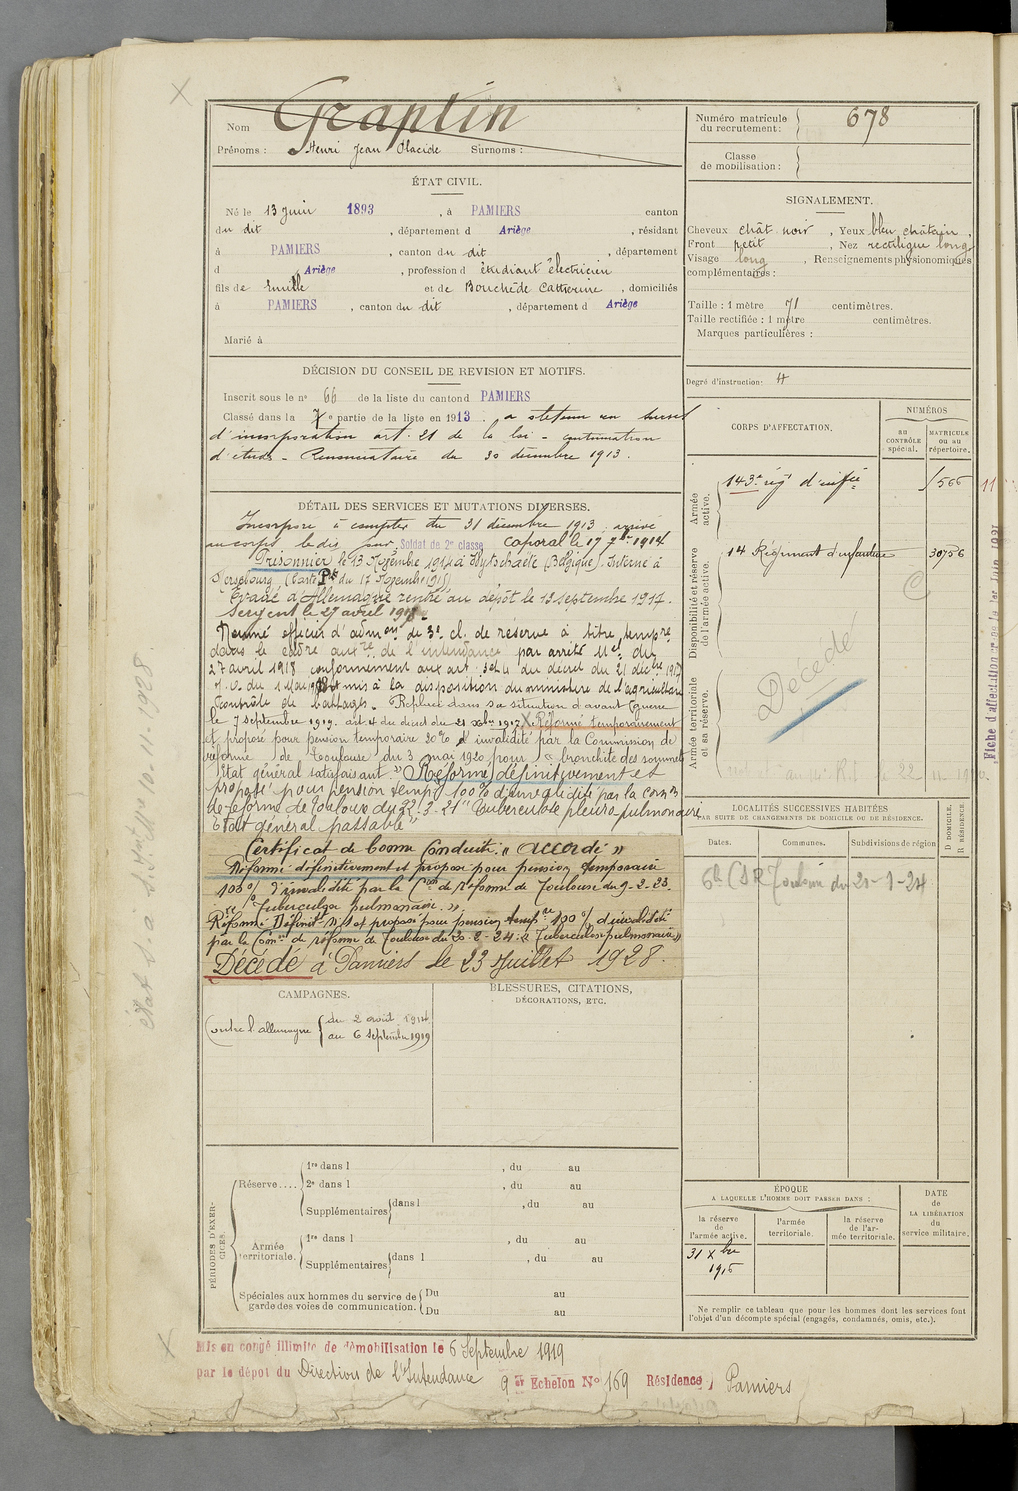 Nom Graptin
Prénoms : Henri Jean Placide Surnoms :
Numéro matricule du recrutement : 678
Classe de mobilisation :
ÉTAT CIVIL.
Né le 13 Juin 1893, à PAMIERS canton
du dit, département d Ariège, résidant
à PAMIERS, canton du dit, département
d Ariège, profession d étudiant électricien
fils de Emile et de Bouchède Catherine, domiciliés
à PAMIERS, canton du dit, département d Ariège
Marié à
SIGNALEMENT.
Cheveux chât noir, Yeux bleu châtain,
Front petit, Nez rectiligne long
Visage long, Renseignements physionomiques
complémentaires :
Taille : 1 mètre 71 centimètres.
Taille rectifiée : 1 mètre centimètres.
Marques particulières :
Degré d'instruction : 4
DÉCISION DU CONSEIL DE REVISION ET MOTIFS.
Inscrit sous le n° 66 de la liste du canton d PAMIERS
Classé dans la 7e partie de la liste en 1913. a obtenu un sursis
d'incorporation art. 21 de la loi - continuation
d'études - Renonciataire du 30 décembre 1913.
DÉTAIL DES SERVICES ET MUTATIONS DIVERSES.
Incorporé à compter du 31 décembre 1913. arrivé
au corps le dit jour Soldat de 2e classe Caporal le 17 7bre 1914
Prisonnier le 13 Novembre 1914 à Wytschaete (Belgique). Interné à
Merseburg (Carte du 17 Novembre 1915)
Evadé d'Allemagne rentré au dépôt le 12 septembre 1917.
Sergent le 27 avril 1918
Nommé officier d'admon de 3e cl. de réserve à titre tempre
dans le cadre auxre de l'intendance par arrêté Mel du
27 avril 1918 conformément aux art. 3 et 4 du décret du 21 décbre 1917
J.O. du 1 Mai 1918 et mis à la disposition du ministère de l'agriculture
Contrôle de battages. Replacé dans sa situation d'avant guerre
le 7 septembre 1919. art 4 du décret du 21 Xbre 1917 X Réformé temporairement
et proposé pour pension temporaire 20% d'invalidité par la Commission de
réforme de Toulouse du 3 mai 1920 pour « bronchite des sommets
Etat général satisfaisant » Réformé définitivement et
proposé pour pension tempre 100% d'invalidité par la comon
de réforme de Toulouse du 22-3-21 "tuberculose pleuro-pulmonaire
Etat général passable"
Certificat de bonne Conduite : « accordé »
Réformé définitivement et proposé pour pension temporaire
100% d'invalidité par la Con de réforme de Toulouse du 9-2-23.
« Tuberculose pulmonaire. »
Réformé Définit No 1 et proposé pour pension tempre 100% d'invalidité
par la Comon de réforme de Toulouse du 20-2-24 : « Tuberculose pulmonaire »
Décédé à Pamiers le 23 Juillet 1928.
CORPS D'AFFECTATION.
NUMÉROS
au CONTRÔLE spécial.
MATRICULE ou au répertoire.
Armée active.
143e régt d'infie 1566
Disponibilité et réserve de l'armée active.
14 Régiment d'infanterie 30756
Armée territoriale et sa réserve.
Décédé
LOCALITÉS SUCCESSIVES HABITÉES
PAR SUITE DE CHANGEMENTS DE DOMICILE OU DE RÉSIDENCE.
Dates. Communes. Subdivisions de région
D DOMICILE, R RÉSIDENCE.
CSR Toulouse du 21-1-24
CAMPAGNES.
Contre l'allemagne { du 2 août 1914
au 6 septembre 1919
BLESSURES, CITATIONS,
DÉCORATIONS, ETC.
PÉRIODES D'EXERCICES.
Réserve....
1re dans l , du au
2e dans l , du au
Supplémentaires dans l , du au
Armée territoriale.
1re dans l , du au
Supplémentaires dans l , du au
Spéciales aux hommes du service de garde des voies de communication.
Du au
Du au
ÉPOQUE
A LAQUELLE L'HOMME DOIT PASSER DANS :
la réserve de l'armée active.
l'armée territoriale.
la réserve de l'armée territoriale.
DATE de LA LIBÉRATION du service militaire.
31 Xbre
1916
Ne remplir ce tableau que pour les hommes dont les services font
l'objet d'un décompte spécial (engagés, condamnés, omis, etc.).
Mis en congé illimité de démobilisation le 6 Septembre 1919
par le dépôt du Direction de l'Intendance 9 Echelon No 169 Résidence, Pamiers
10-11-1928
Fiche d'affectation
1er Juin 1921
11